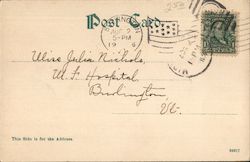 Post Card.
5-PM
Miss Julia Nichols,
W. F. Hospital
Burlington
Vt.
This Side is for the Address.